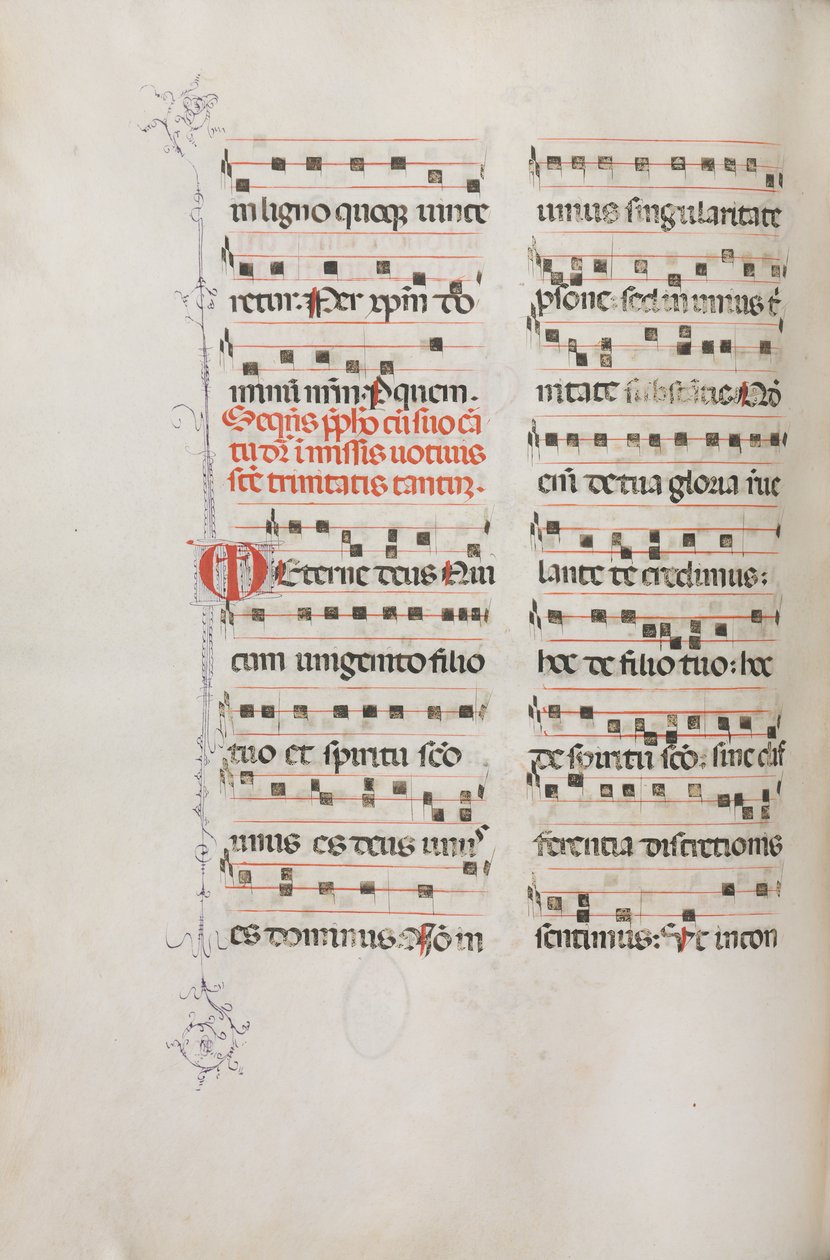 in ligno quoqꝫ uince
retur. Per xp̄m do
minū nr̄m. Pquem.
Seqñs p̄pħo cū suo cā
tu dr̄ ī missis uotiuis
sc̄e trinitatis cantur.
Eterne deus Qui
cum unigenito filio
tuo et spiritu sc̄o
unus es deus unus
es dominus. Nō in
unius singularitate
ꝑsone: sed in unius t̄
nitate substātie. Qđ
eni de tua gloria rue
lante te credimus:
hoc de filio tuo: hoc
de spiritu sc̄o: sine dif
ferentia discretionis
sentimus: Vt in con